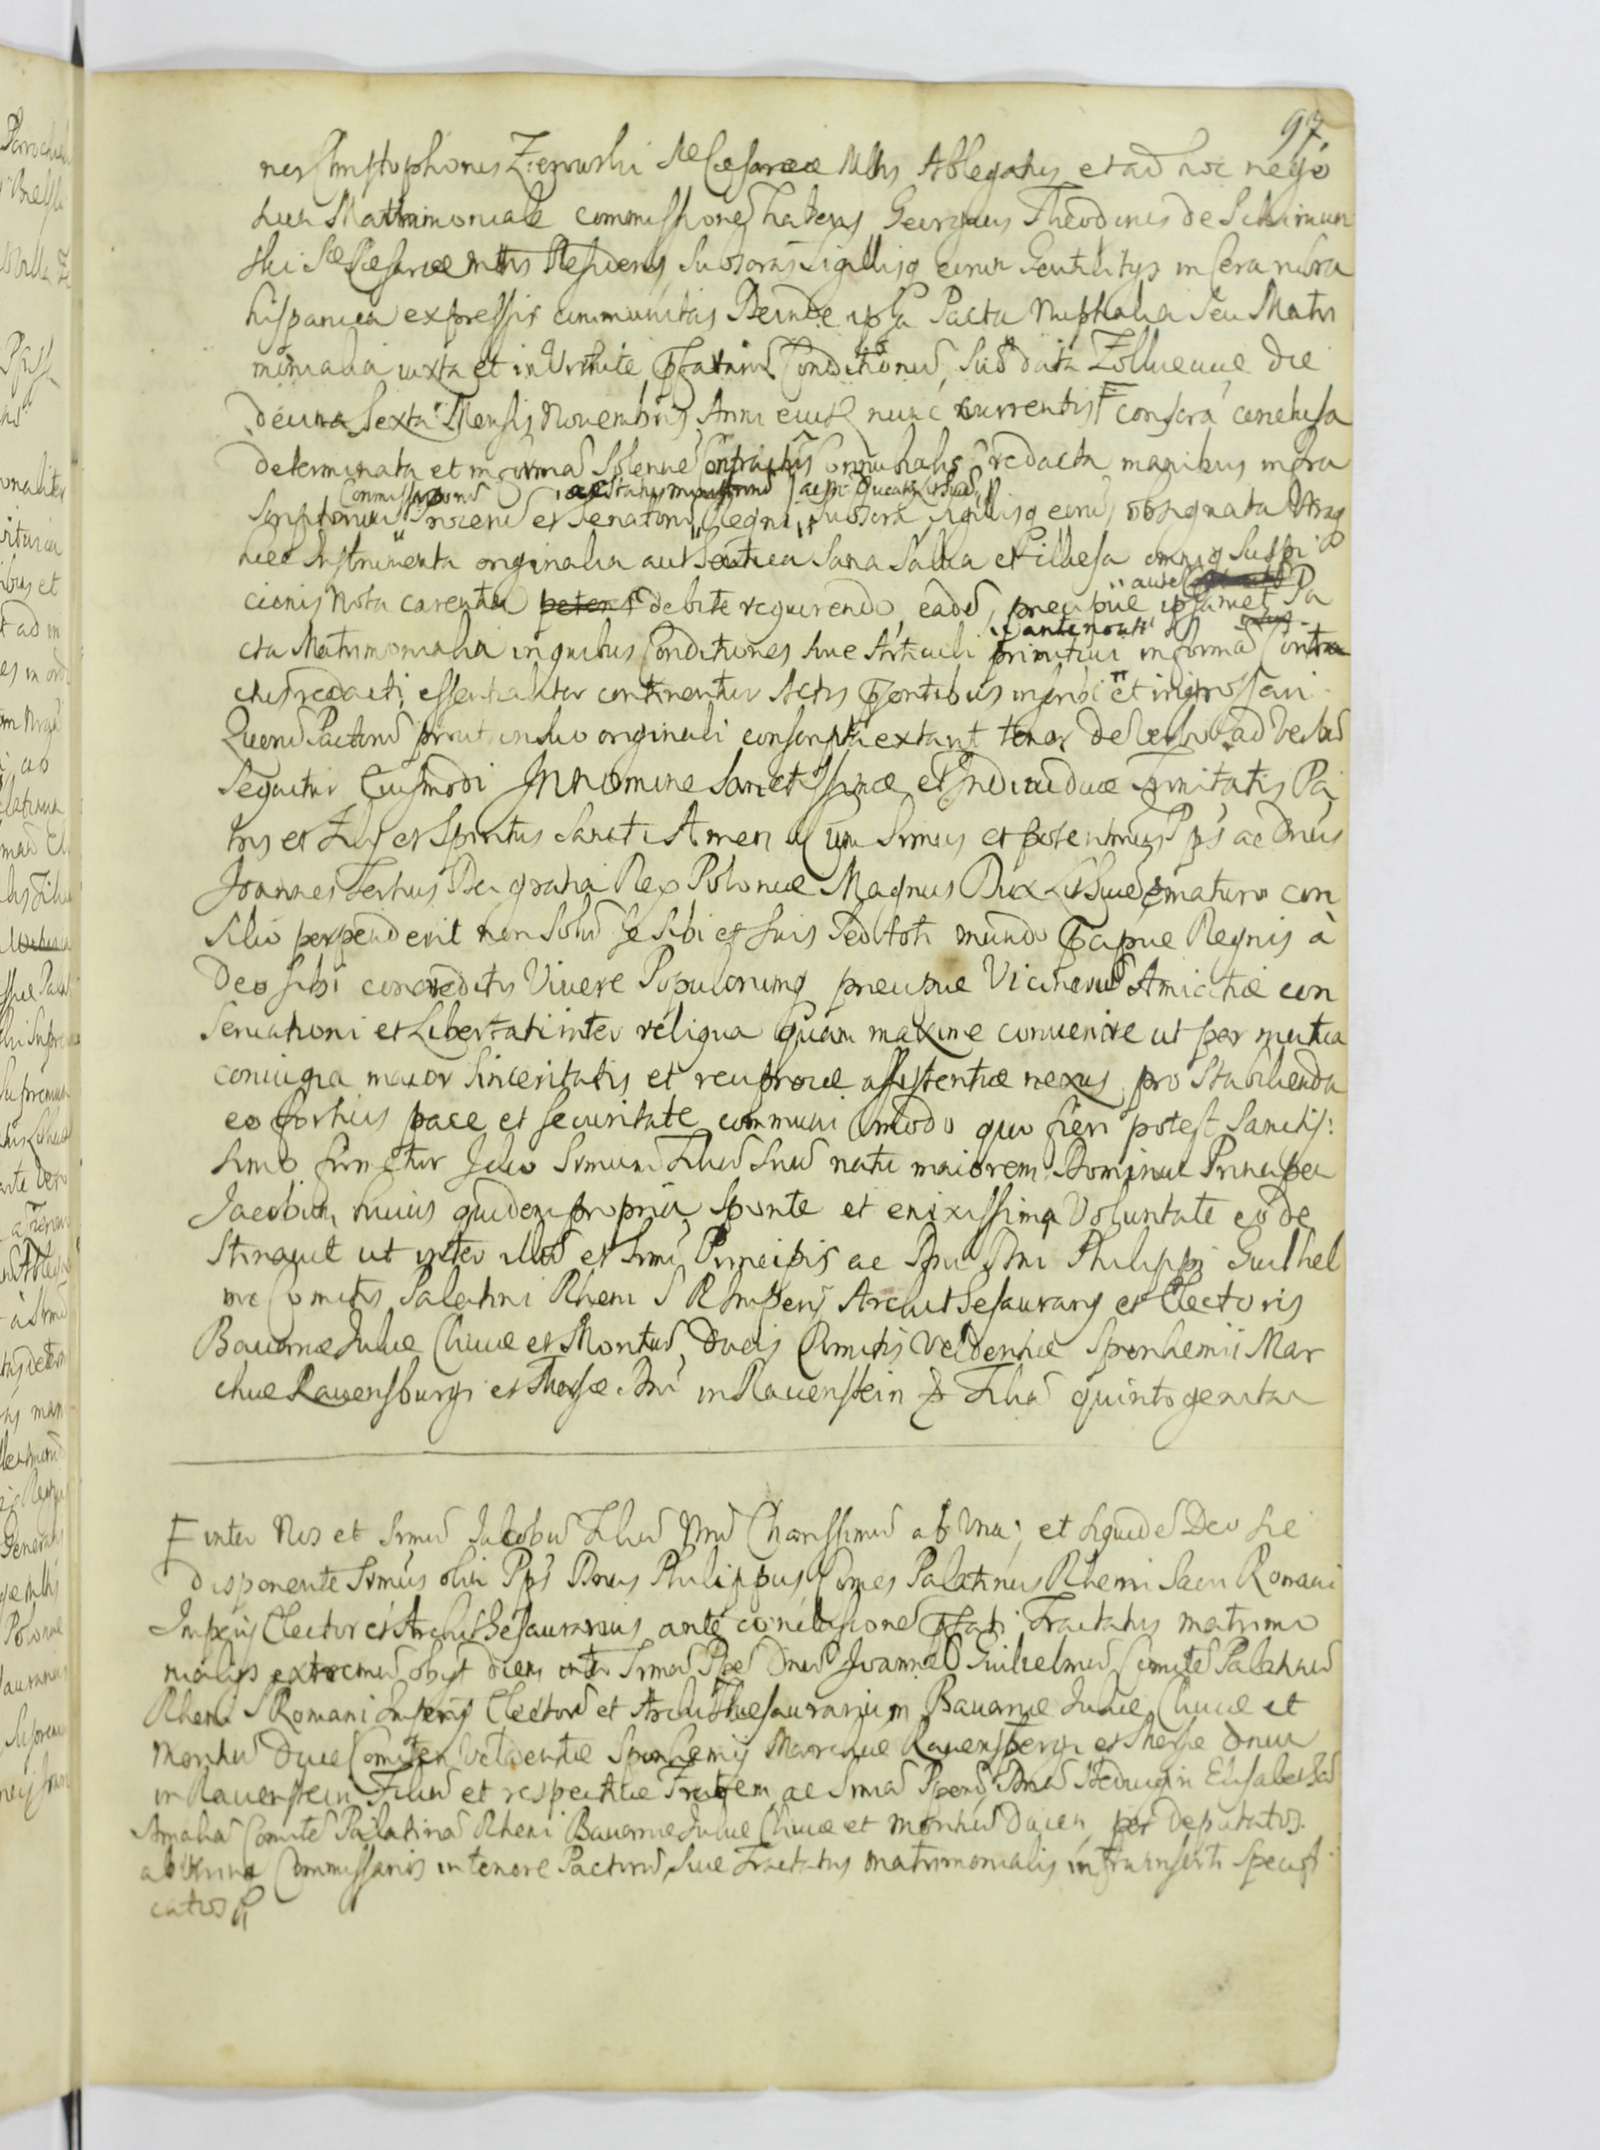 97
nes Christophorus Zierowski Sae Caesareae Mttis Ablegatus et ad hoc nego
tium Matrimoniale commissionem habens Georgius Theodorus de Schimun
ski Sae Caesareae Mttis Residens subscrā Sigillisq eorum Gentilitys in Cera rubra
hispanica expressis communitas Deinde ipsa Pacta Nuptialia seu Matri
monialia iuxta et in Virtute Conditionum, sub data Zolkieuiae die
decima sexta Mensis Nouembris Anni nunc currentis conscra conclusa
determinata et in formam Solennē Contractus Connubialis redacta manibus infra
Commissariorum ac Status Ministrorum
Scriptorum Procerum et Senatorum Regni subscra Sigillisq eorum obsignata
haec Instrumenta originalia autentica Sana Salua et illaesa omniq Suspi
cionis Nota carentia debite requirendo, eadē praecipue ipsamet Pa
anteriores
cta Matrimonialia in quibus Conditiones siue Articuli primitiui in formā Contra
ctus redacti essentialiter continentur Actis inscribi et ingrossari
Quorū Pactorū prout in suo originali conscripta extant tenor de verbo ad verbū
sequitur Eiusmodi In Nomine Sanctissimae et Indiuiduae Trinitatis Pa
tris et Fily et Spiritus Sancti Amen Cum Srmus et potentmus Pps ac Dnus
Joannes Tertius Dei gratia Rex Poloniae Magnus Dux Lithuae maturo con
silio perpenderit non Solū se Sibi et suis Sed toti mundo Regnis à
Deo Sibi concreditis Vivere Populorumq praecipue Vicinorū Amicitiae con
seruationi et Libertati inter reliqua quam maxime conuenire ut per mutua
coniugia maior Sinceritatis et reciprocae assistentiae nexus pro Stabilienda
eo fortius pace et securitate communi modo quo fieri potest Sanctis:
simo firmetur Ideo Srmum Filiū Suū natu maiorem Dominum Principem
Jacobum, huius quidem propria Sponte et enixissima Voluntate eo de
stinauit ut inter illū et Srmi Principis ac Dni Dni Philippi Guilhel
mi Comitis Palatini Rheni S R Impery Archithesaurary et Electoris
Bauariae Juliae Cliuiae et Montiū Ducis Comitis Veldentiae Sponhemii Mar
chiae Rauensburgi et Moersae Dni in Rauenstein & Filiā quintogenitam
F inter Nos et Srmū Jacobū Filiū Nrū Charissimū ab Vna; et siquidē Deo sic
disponente Srmus olim Pps Dnus Philippus Comes Palatinus Rheni Sacri Romani
Impery Elector et Archithesaurarius ante conclusionē Tractatus matrimo
nialis extremū obyt diem inter Srmū Ppē Dnū Joannē Guilielmū Comitē Palatinū
Rheni S Romani Impery Electorē et Archithesaurarium Bauariae Juliae Cliuiae et
Montiū Ducē Comitem Veldentiae Sponhemy Marchiae Rauensbergi et Moersae Dnum
in Rauenstein Filiū et respectiue Fratrem ac Srmā Dnā Hedwigim Elisabethā
Amaliā Comitē Palatinā Rheni Bauariae Juliae Cliuiae et Montiū Ducem, per deputatos
ab utrinq Commissarios in tenore Pactorū siue Tractatus matrimonialis inferius inserti specifi
catos